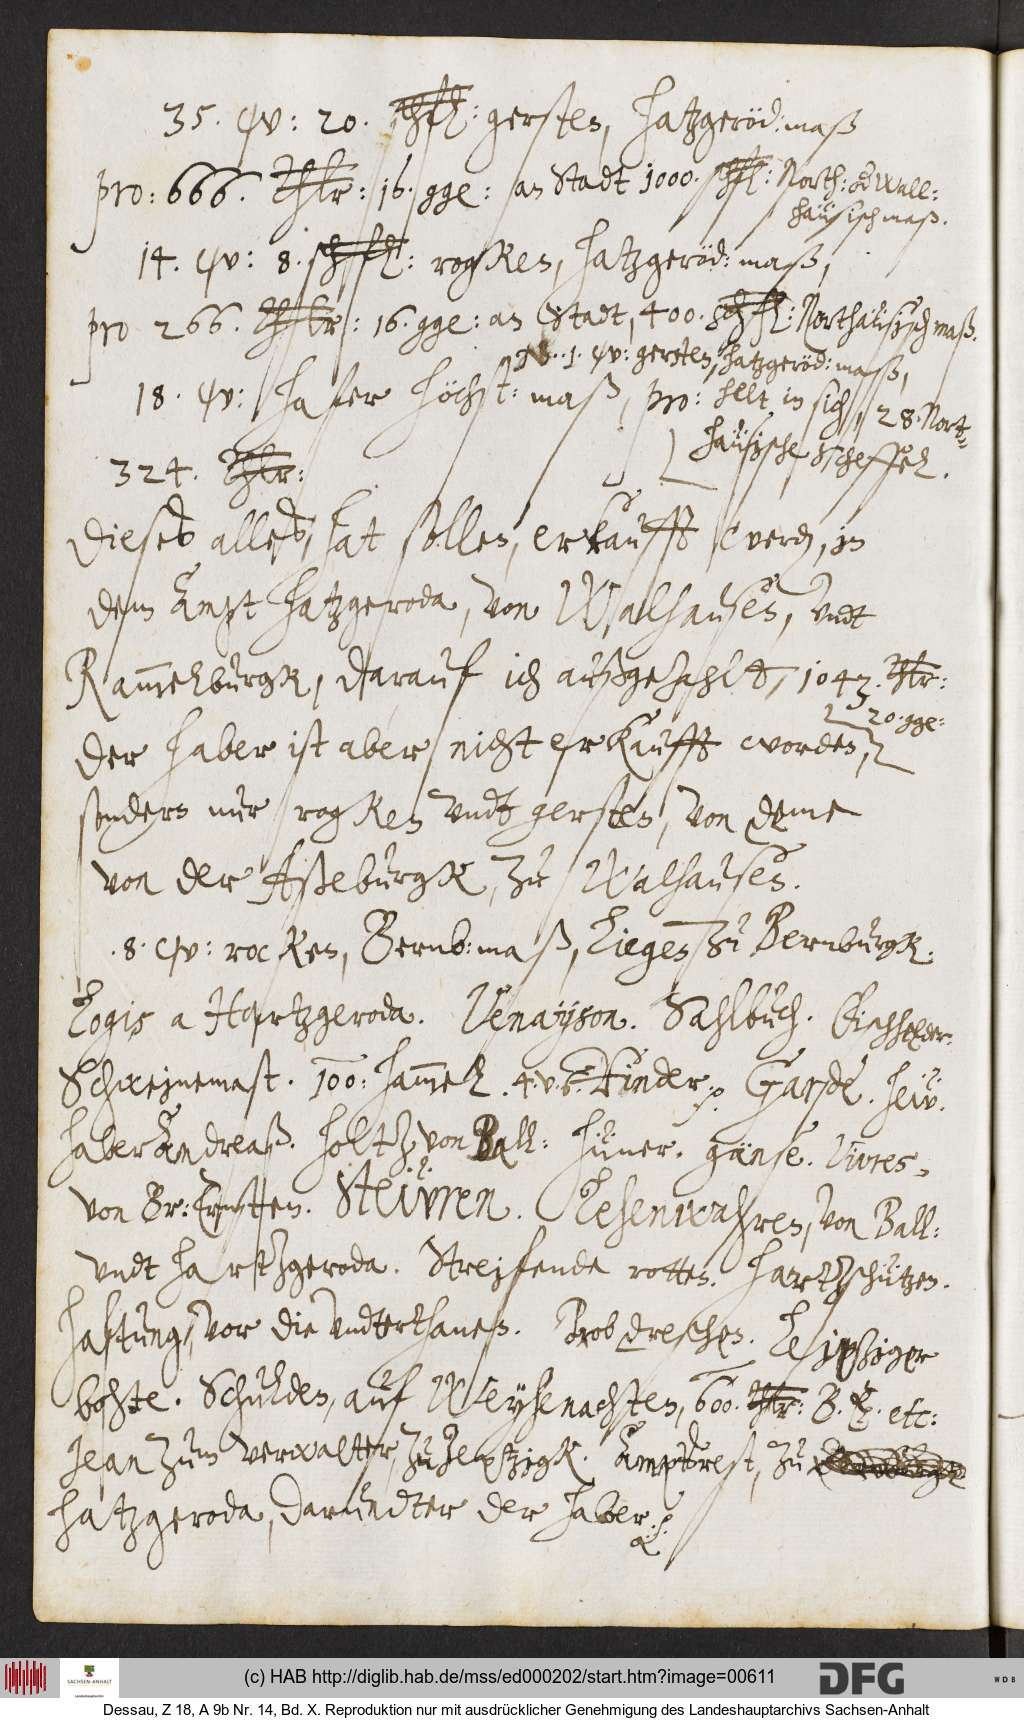 35. qu: 20. schfl: gersten, Hatzgeröd: maß
pro: 666. Thlr: 16 gge: an Stadt 1000. schfl: North: od Wall:
hausisch maß.
14. qu: 8. schfl: rogken, Hatzgeröd: maß,
pro 266. Thlr: 16. gge: an Stadt, 400. schfl: Northaüsisch maß.
NB. 1. qu: gersten, hatzgeröd: maß,
18. qu: Hafer Höchst: maß, pro: helt in sich, 28. Nort-
haüsische Scheffel.
324. Thlr:
Dieses alles, hat sollen, erkaufft werden, in
dem Ampt Hatzgeroda, von Walhausen, undt
Ram̅elburgk, darauf ich außgezahlt, 1043. Thlr:
20. gge:
der Haber ist aber nicht erkaufft worden,
sondern nur rogken undt gersten, von deme
von der Aßeburgk, zu Walhausen.
8. qu: rocken, Bernb: maß, liegen zu Bernburgk.
Logis a Hartzgeroda. Venayson. Sahlbuch.
Schweinemast. 100: Ham̅el. 4. v. 6. Rinder. Garde. Heu.
Haber Andreaß. Holtz von Ball: Hüner. gänse. Vivres
von Br: Ernsten. Steüren. Lehenwahren, von Ball:
undt Hartzgeroda. Streifende rotten. Hartzschützen.
Haftung, vor die Undterthanen. Probdreschen. Leiptziger
bohte. Schulden, auf Weyhenachten, 600. Thlr: B. E. etc:
Jean zum verwalter, zu Jeptzigk. Amptsrest, zu
Hatzgeroda, darundter der Haber.